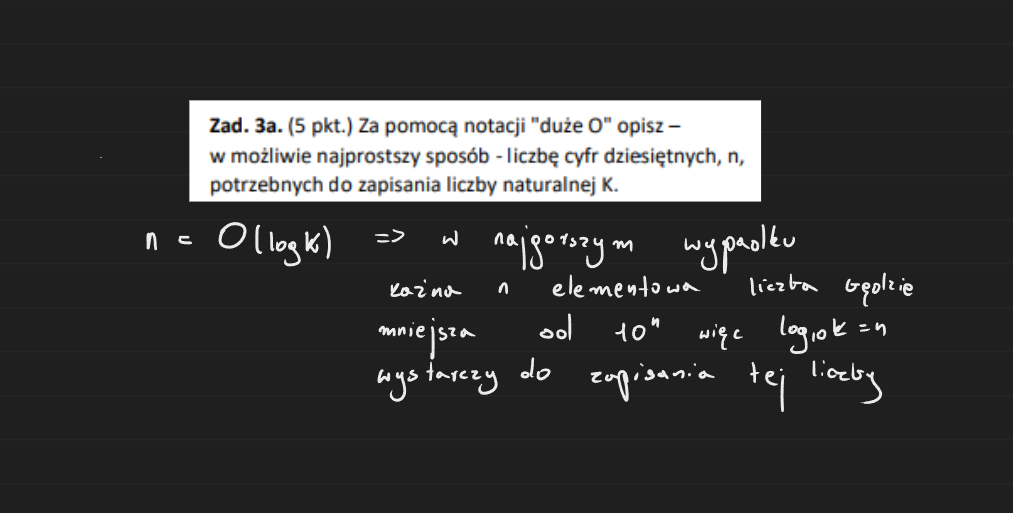 Zad. 3a. (5 pkt.) Za pomocą notacji "duże O" opisz –
w możliwie najprostszy sposób - liczbę cyfr dziesiętnych, n,
potrzebnych do zapisania liczby naturalnej K.
n = O(log K) => w najgorszym wypadku
każna n elementowa liczba będzie
mniejsza od 10ⁿ więc log₁₀K = n
wystarczy do zapisania tej liczby